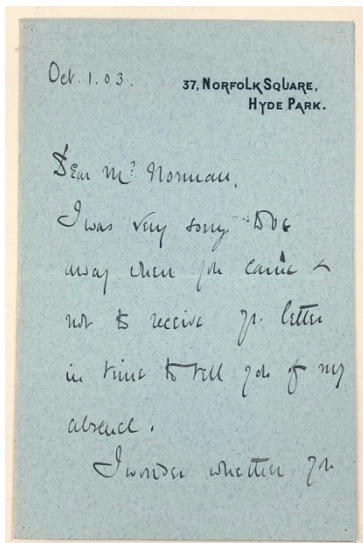 Oct. 1. 03.
37, Norfolk Square,
Hyde Park.
Dear Mr. Norman,
I was very sorry to be
away when you came &
not to receive yr. letter
in time to tell you of my
absence.
I wonder whether you